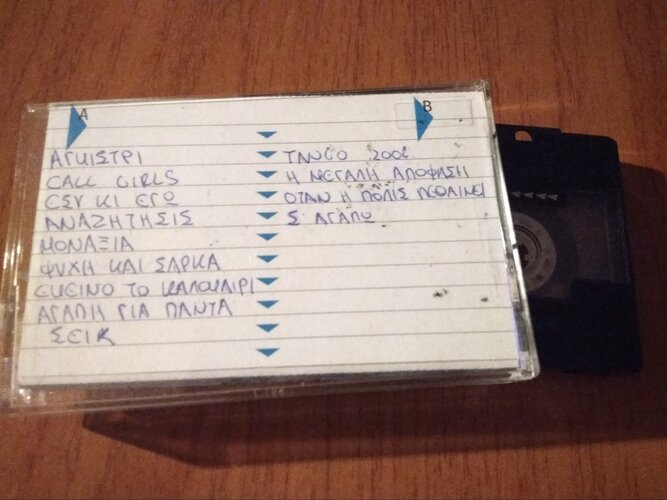 A
ΑΓΚΙΣΤΡΙ
CALL GIRLS
ΕΣΥ ΚΙ ΕΓΩ
ΑΝΑΖΗΤΗΣΙΣ
ΜΟΝΑΞΙΑ
ΨΥΧΗ ΚΑΙ ΣΑΡΚΑ
ΕΚΕΙΝΟ ΤΟ ΚΑΛΟΚΑΙΡΙ
ΑΓΑΠΗ ΓΙΑ ΠΑΝΤΑ
ΣΕΙΚ
B
TANGO 2001
Η ΜΕΓΑΛΗ ΑΠΟΦΑΣΗ
ΟΤΑΝ Η ΠΟΛΙΣ ΠΕΘΑΙΝΕΙ
Σ ΑΓΑΠΩ